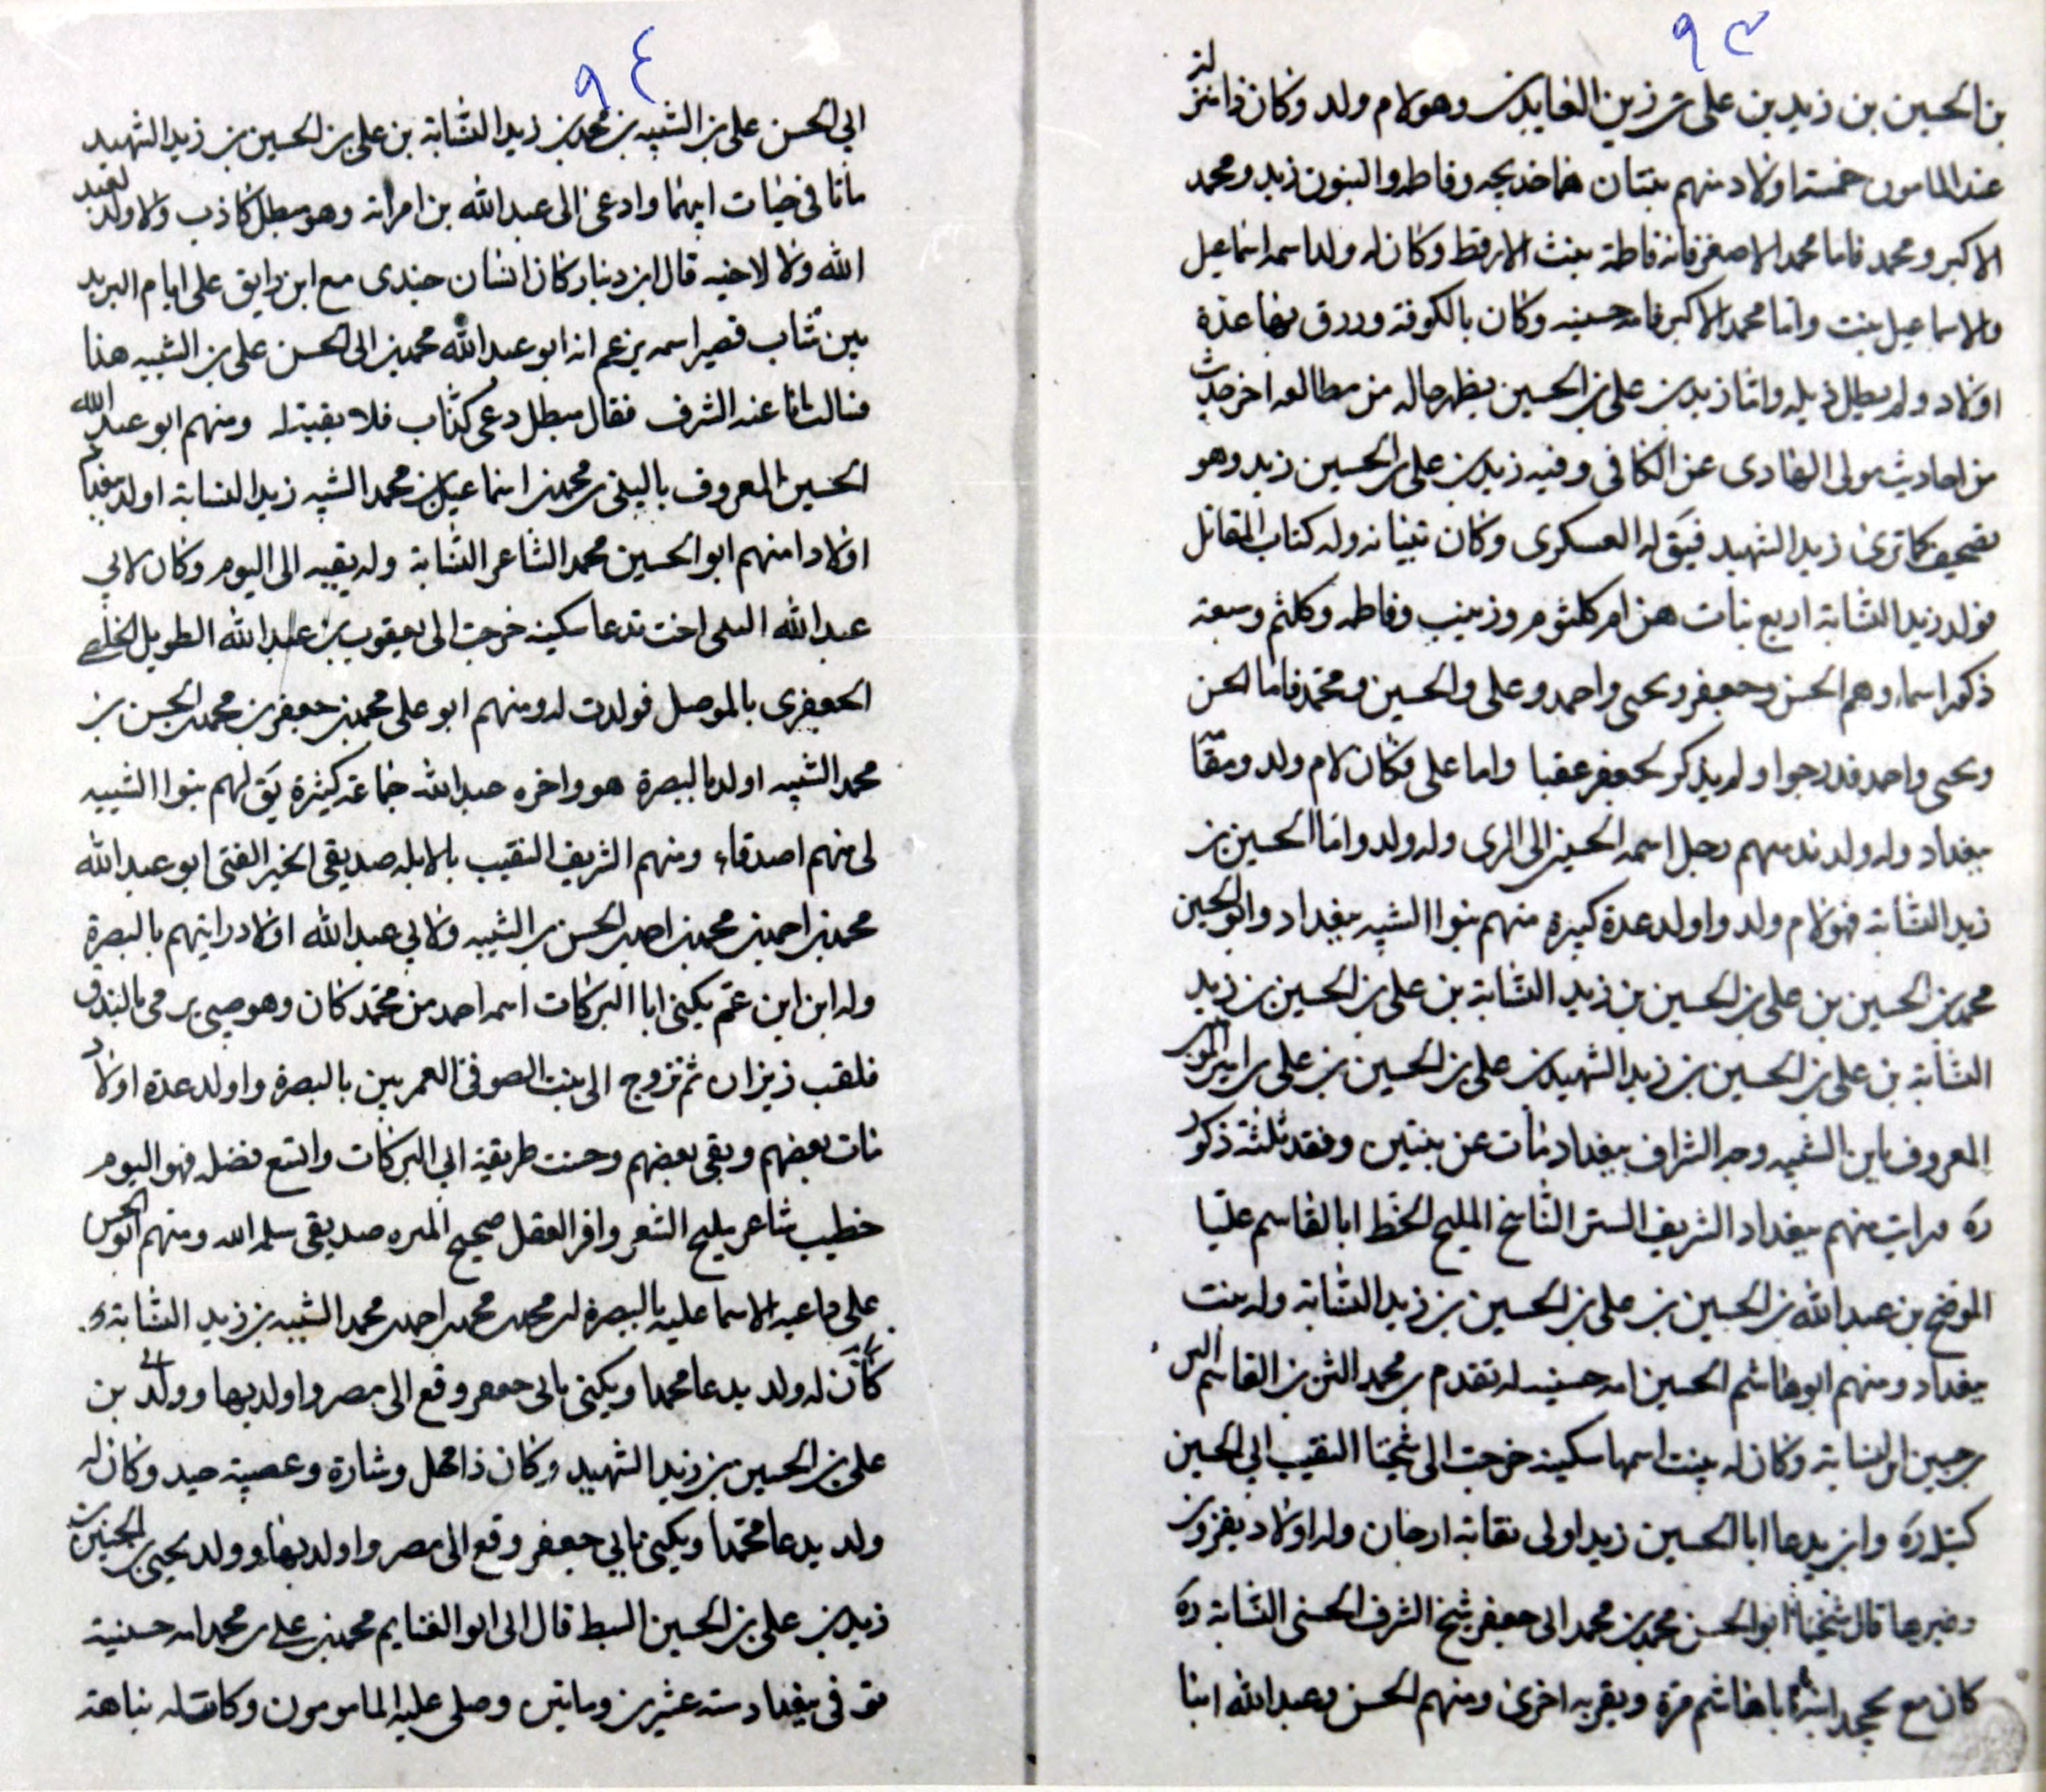 ٩٣
بن الحسين بن زيد بن على بن زين العابدين وهو لام ولد وكان ذا منزلة
عند المامون خمسة اولاد منهم بنتان هما خديجه وفاطمه والبنون زيد ومحمد
الاكبر ومحمد فاما محمد الاصغر فانه فاطمة بنت الارقط وكان له ولد اسمه اسماعيل
ولاسماعيل بنت واما محمد الاكبر فامه حسينيه وكان بالكوفة ورزق بها عدة
اولاد ولم يطل ذيله واما زيد بن على بن الحسين يظهر حاله من مطالعه اخر حديث
من احاديث مولى الهادى عن الكافى وفيه زيد بن على بن الحسين زيد وهو
تصحيف كما ترى زيد الشهيد فيق له العسكرى وكان نسابه وله كتاب المقاتل
فولد زيد النسابة اربع بنات هن ام كلثوم وزينب وفاطمه وكلثم وسبعة
ذكورا اسماء وهم الحسن وجعفر ويحيى واحمد وعلى والحسين ومحمد فاما الحسن
ويحيى واحمد فدرجوا ولم يذكر لجعفر عقبا واما على فكان لام ولد ومقا
ببغداد وله ولد ندمنهم رجل اسمه الحسين الى الرى وله ولد واما الحسين بن
زيد النسابة فهو لام ولد واولد عدة كبيرة منهم بنوا الشبيه ببغداد وابو الحسين
محمد بن الحسين بن على بن الحسين بن زيد النسابة بن على بن الحسين بن زيد
النسابة بن على بن الحسين بن زيد الشهيد بن على بن الحسين بن على بن امير المومنين
المعروف بابن الشبيه وجه الشراف ببغداد مات عن بنتين وفقد ثلثة ذكور
ره ورايت منهم ببغداد الشريف الستر الناسخ المليح الخط ابا القاسم عليا
الموضح بن عبدالله بن الحسين بن على بن الحسين بن زيد النسابة وله بنت
ببغداد ومنهم ابوهاشم الحسين امه حسنيه له تقدم بن محمد بن القاسم
بن حسين ابن النسابة وكان له بنت اسمها سكينه خرجت الى شيخنا النقيب ابى الحسين
كتيله ره وابن يدعا ابا الحسين زيد اولى نقابة ارجان وله اولاد بقزوين
وغيرها قال شيخنا ابو الحسن محمد بن محمد ابى جعفر شيخ الشرف الحسنى النسابة ره
كان مع ابا هاشم مرة وبقربه اخرى ومنهم الحسن وعبدالله ابنا
٩٤
ابى الحسن على بن الشبيه بن محمد بن زيد النسابة بن على بن الحسين بن زيد الشهيد
ماتا فى حيات ابيهما وادعى الى عبدالله بن امراة وهو مبطل كاذب ولا ولد لعبد
الله ولا لاخيه قال ابن دينار كان انسان جندى مع ابن رايق على ايام البريد
بين شاب قصير اسمه يزعم انه ابو عبدالله محمد بن ابى الحسن على بن الشبيه هذا
فسالت انا عنه الشرف فقال مبطل دعى كذاب فلا بقية له ومنهم ابو عبدالله
الحسين المعروف بن محمد بن اسماعيل بن محمد الشبيه زيد النسابة اولد
اولادا منهم ابو الحسين محمد الشاعر النسابة وله بقيه الى اليوم وكان لابى
عبدالله اخت تدعا سكينه خرجت الى يعقوب بن عبدالله الطويل
الجعفرى بالموصل فولدت له ومنهم ابو على محمد بن جعفر بن محمد بن الحسن بن
محمد الشبيه اولد بالبصرة هو واخره عبدالله جماعة كثيرة يق لهم بنوا الشبيه
لى منهم اصدقاء ومنهم الشريف النقيب بالابله صديقى الخير الفتى ابو عبدالله
محمد بن احمد بن محمد بن احمد بن الحسن بن الشبيه ولابى عبدالله اولاد رايتهم بالبصرة
وله ابن ابن عم يكنى ابا البركات اسمه احمد من محمد كان وهو صبى يرمى بالبندق
فلقب ثم تزوج الى بنت الصوفى العمريين بالبصرة واولد عدة اولاد
مات بعضهم وبقى بعضهم وحسنت طريقة ابى البركات واتسع فضله فهو اليوم
خطيب شاعر مليح الشعر وافر العقل صحيح صديقى سلمه الله ومنهم ابو الحسن
على داعيه الاسماعليه بالبصرة له محمد بن محمد بن احمد بن محمد الشبيه بن زيد النسابة و
كان له ولد يدعا محمدا ويكنى بابى جعفر وقع الى مصر واولد بها وولد بن
على بن الحسين بن زيد الشهيد وكان ذا محل وشارة وعصبية حيد وكان له
ولد يدعا محمدا ويكنى بابى جعفر وقع الى مصر واولد بها وولد يحيى بن الحسين بن
زيد بن على بن الحسين السبط قال الى ابو الغنايم محمد بن على بن محمد امه حسنية
توفى ببغداد سنه عشرين وماتين وصلى عليه المامومون وكانت له نباهة